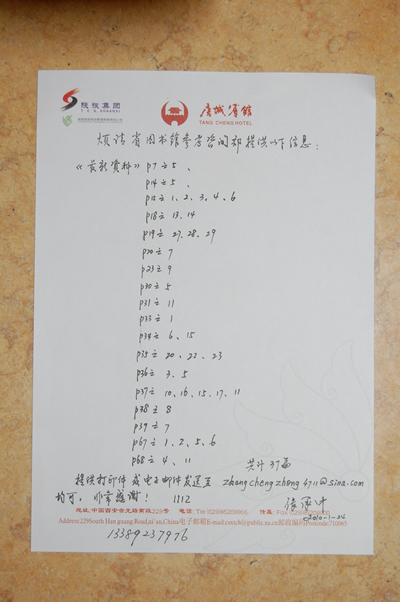 陕旅集团
唐城宾馆
TANG CHENG HOTEL
烦请省图书馆参考咨询部提供以下信息:
《最新资料》p7之5、
p14之5、
p12之1、2、3、4、6
p18之13、14
p19之27、28、29
p20之7
p23之9
p30之5
p31之11
p33之1
p34之6、15
p35之20、22、23
p36之3、5
p37之10、16、15、17、11
p38之8
p39之7
p67之1、2、5、6
p68之4、11
共计37篇
提供打印件或电子邮件发送至 zhangchengzhong4711@sina.com
均可,非常感谢! 1212
2010-1-24
地址:中国西安含光路南段229号 电话:Tel 传真:Fax
Address:229South Han guang Road,xi'an,China 电子邮箱E-mail 邮政编码Postcode:710065
13389237976